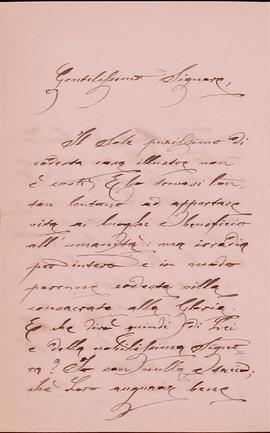 Gentilissima Signora,
Il Sole purissimo di
codesta casa illustre non
è costì; Esso trovasi lon-
tan lontano ad apportare
vita ai luoghi e beneficio
all'umanità: ma irradia
per intero e in modo
perenne codesta villa
consacrata alla Gloria.
E che dirò quindi di Lui
e della nobilissima Signo-
ra? Io son nulla e taccio;
chè Loro augurare bene